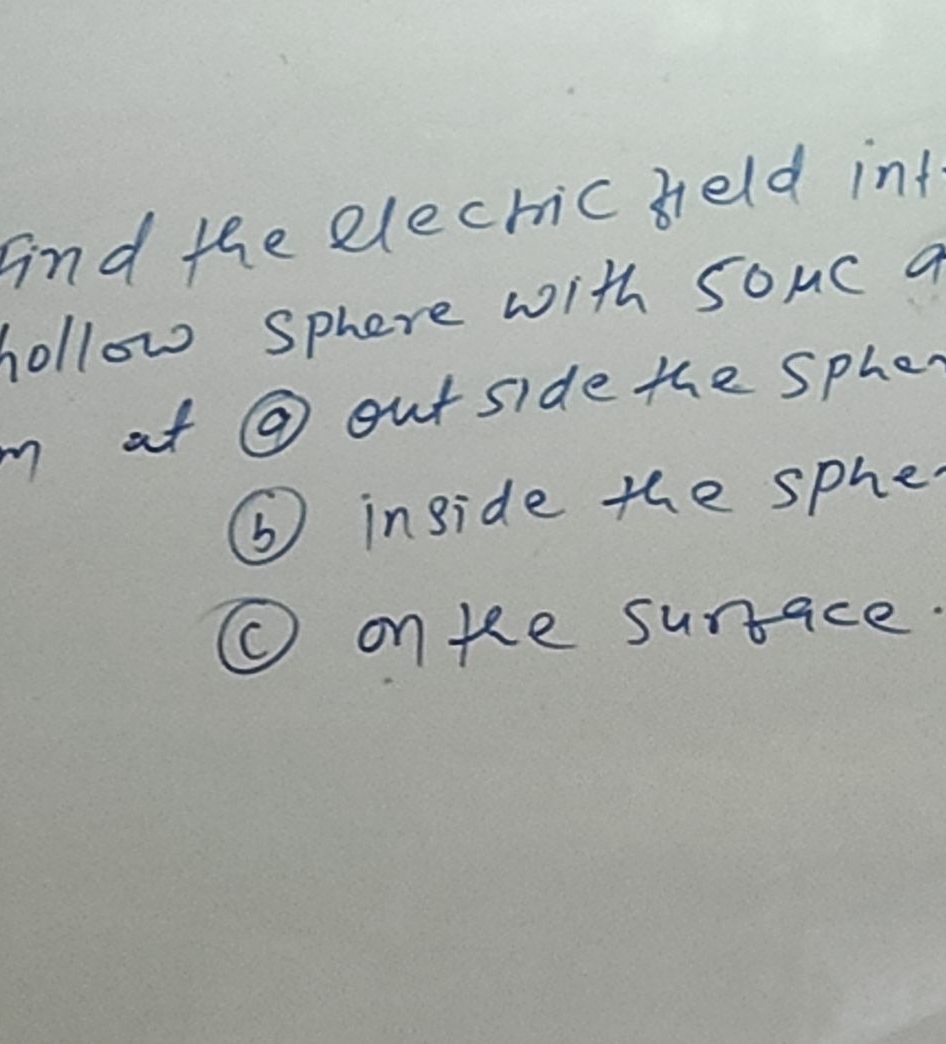 Find the electric field int
hollow sphere with 50 μC a
m at ⓐ out side the spher
ⓑ inside the sphe
ⓒ on the surface.